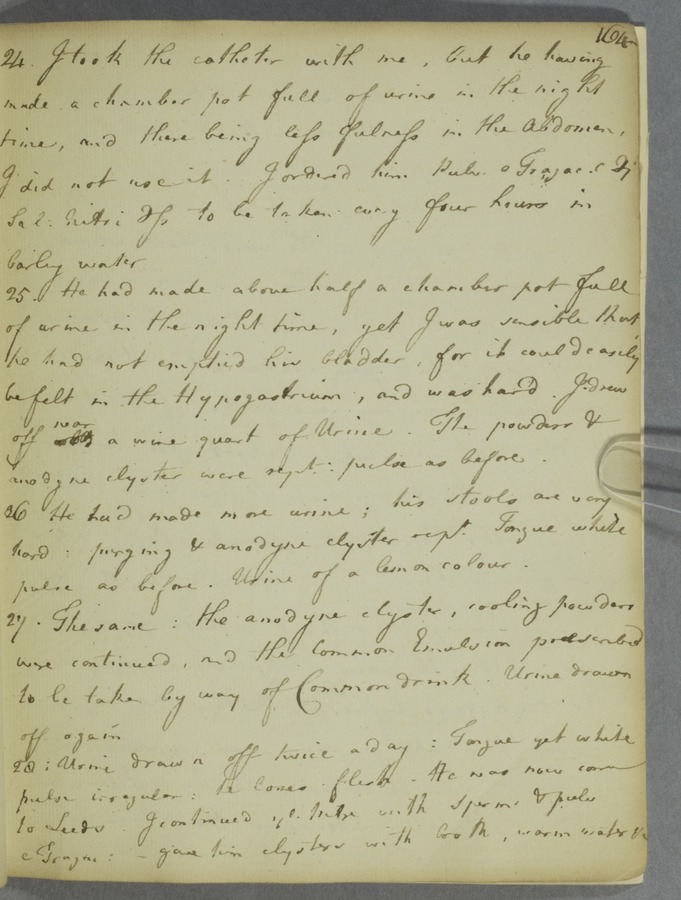 164
24. I took the catheter with me, but he having
made a chamber pot full of urine in the night
time, and there being less fulness in the Abdomen,
I did not use it. I ordered him Pulv. e Tragac. c
Sal: Nitri to be taken every four hours in
barley water
25. He had made above half a chamber pot full
of urine in the night time, yet I was sensible that
he had not emptied his bladder, for it could easily
be felt in the Hypogastrium, and was hard. I drew
off near a wine quart of Urine. The powders &
anodyne clyster were rept: pulse as before.
26 He had made more urine; his stools are very
hard: purging & anodyne clyster rept. Tongue white
pulse as before. Urine of a lemon colour.
27. The same: the anodyne clyster, cooling powders
were continued, and the Common Emulsion prescribed
to be taken by way of Common drink. Urine drawn
off again
28: Urine drawn off twice a day: Tongue yet white
pulse irregular: he loses flesh. He was now come
to Leeds. I continued ye. with sperm: & pulv
e Tragac: - gave him clysters with broth, warm water &c